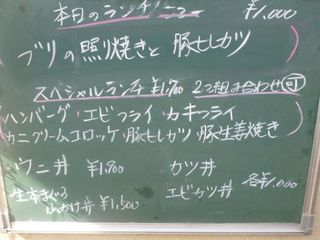 本日のランチメニュー ¥1,000
ブリの照り焼きと 豚ヒレカツ
スペシャルランチ ¥1,700 2つ組み合わせ可
ハンバーグ・エビフライ・カキフライ
カニクリームコロッケ・豚ヒレカツ・豚生姜焼き
ウニ丼 ¥1,900 カツ丼
生本まぐろ エビカツ丼 各¥1,000
山かけ丼 ¥1,500